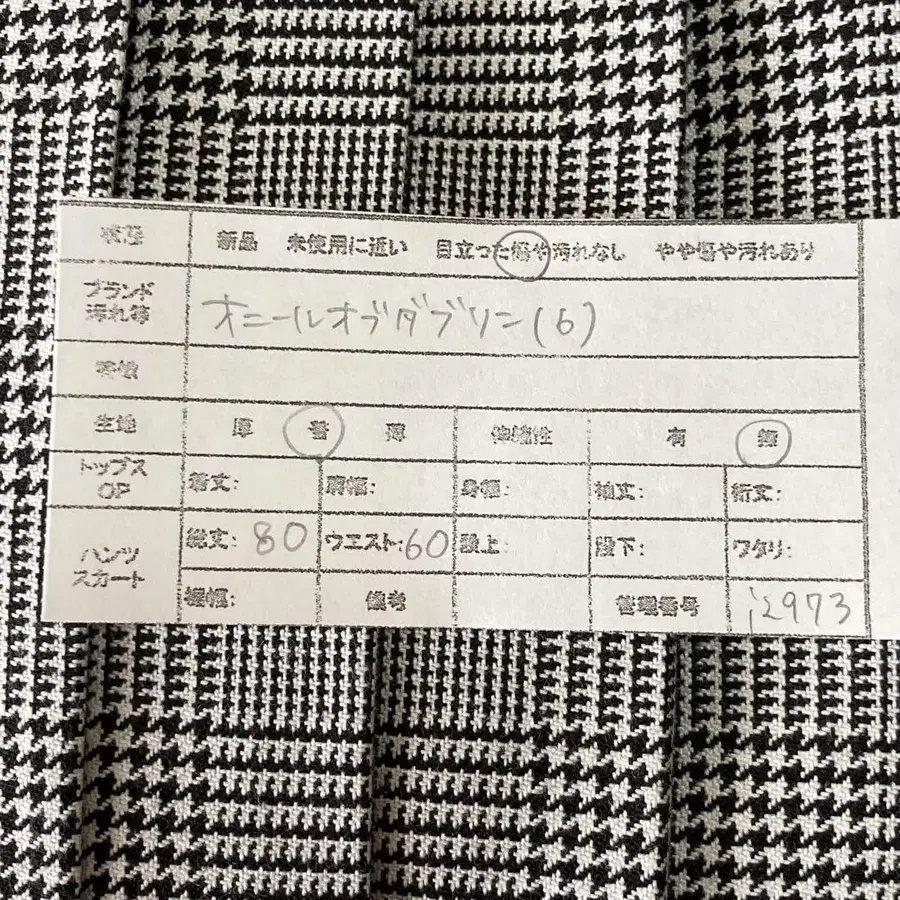 状態 新品 未使用に近い 目立った傷や汚れなし やや傷や汚れあり
ブランド
汚れ等 オニールオブダブリン(6)
生地 厚 普 薄 伸縮性 有 無
トップス
OP 着丈: 肩幅: 身幅: 袖丈: 裄丈:
パンツ
スカート 総丈: 80 ウエスト: 60 股上: 股下: ワタリ:
裾幅: 備考 管理番号 i2973